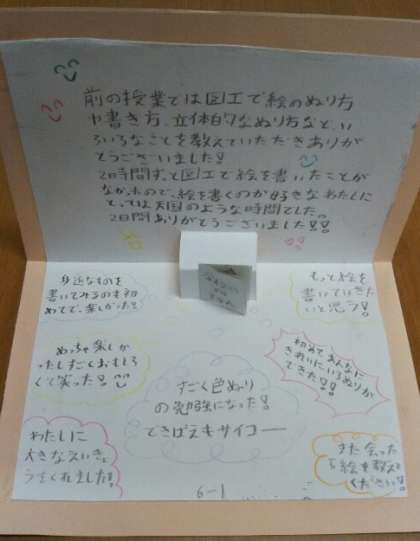 前の授業では図工で絵のぬり方
や書き方、立体的なぬり方など、い
ろいろなことを教えていただきありが
とうございました!!
2時間ずっと図工で絵を書いたことが
なかったので、絵を書くのが好きなわたしに
とっては天国のような時間でした。
2日間ありがとうございました!!
身近なものを
書いてみるのも初
めてで、楽しかった!!
もっと絵を
書いていきた
いと思う!!
めっちゃ楽しか
ったしすごくおもしろ
くて笑った!!
初めてあんなに
きれいにいろぬりが
できた!!
すごく色ぬり
の勉強になった!!
できばえもサイコー
わたしに
大きなえいきょ
うをくれました!!
また会った
ら絵を教えて
ください!!
6-1